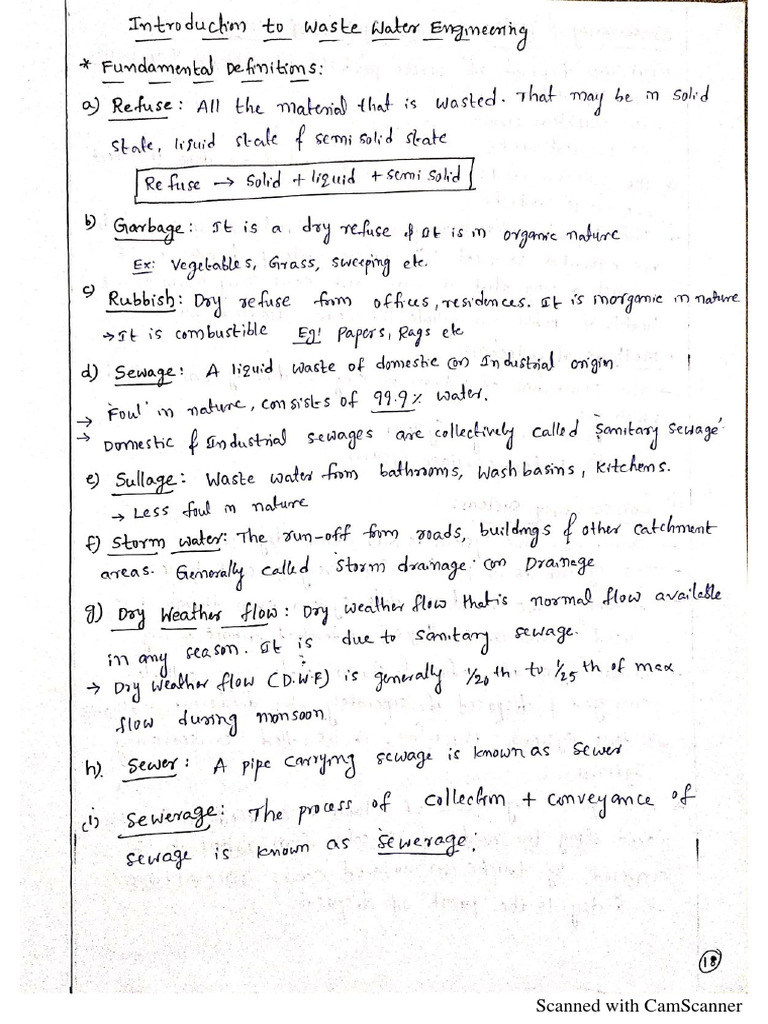 Introduction to Waste Water Engineering
* Fundamental Definitions:
a) Refuse: All the material that is wasted. That may be in Solid
State, liquid state & semi solid state
Refuse → Solid + liquid + semi solid
b) Garbage: It is a dry refuse & It is in organic nature
Ex: Vegetables, Grass, sweeping etc.
c) Rubbish: Dry refuse from offices, residences. It is inorganic in nature
→ It is combustible Eg: Papers, Rags etc
d) Sewage: A liquid waste of domestic (or) Industrial origin
→ Foul in nature, consists of 99.9% water.
→ Domestic & Industrial sewages are collectively called 'Sanitary Sewage'
e) Sullage: Waste water from bathrooms, Wash basins, Kitchens.
→ Less foul in nature
f) Storm water: The run-off from roads, buildings & other catchment
areas. Generally called storm drainage (or) Drainage
g) Dry Weather flow: Dry weather flow that is normal flow available
in any season. It is due to sanitary sewage.
→ Dry weather flow (D.W.F) is generally 1/20th to 1/25th of max
flow during monsoon
h) Sewer: A pipe carrying sewage is known as Sewer
(i) Sewerage: The process of collection + conveyance of
sewage is known as sewerage.
18
Scanned with CamScanner